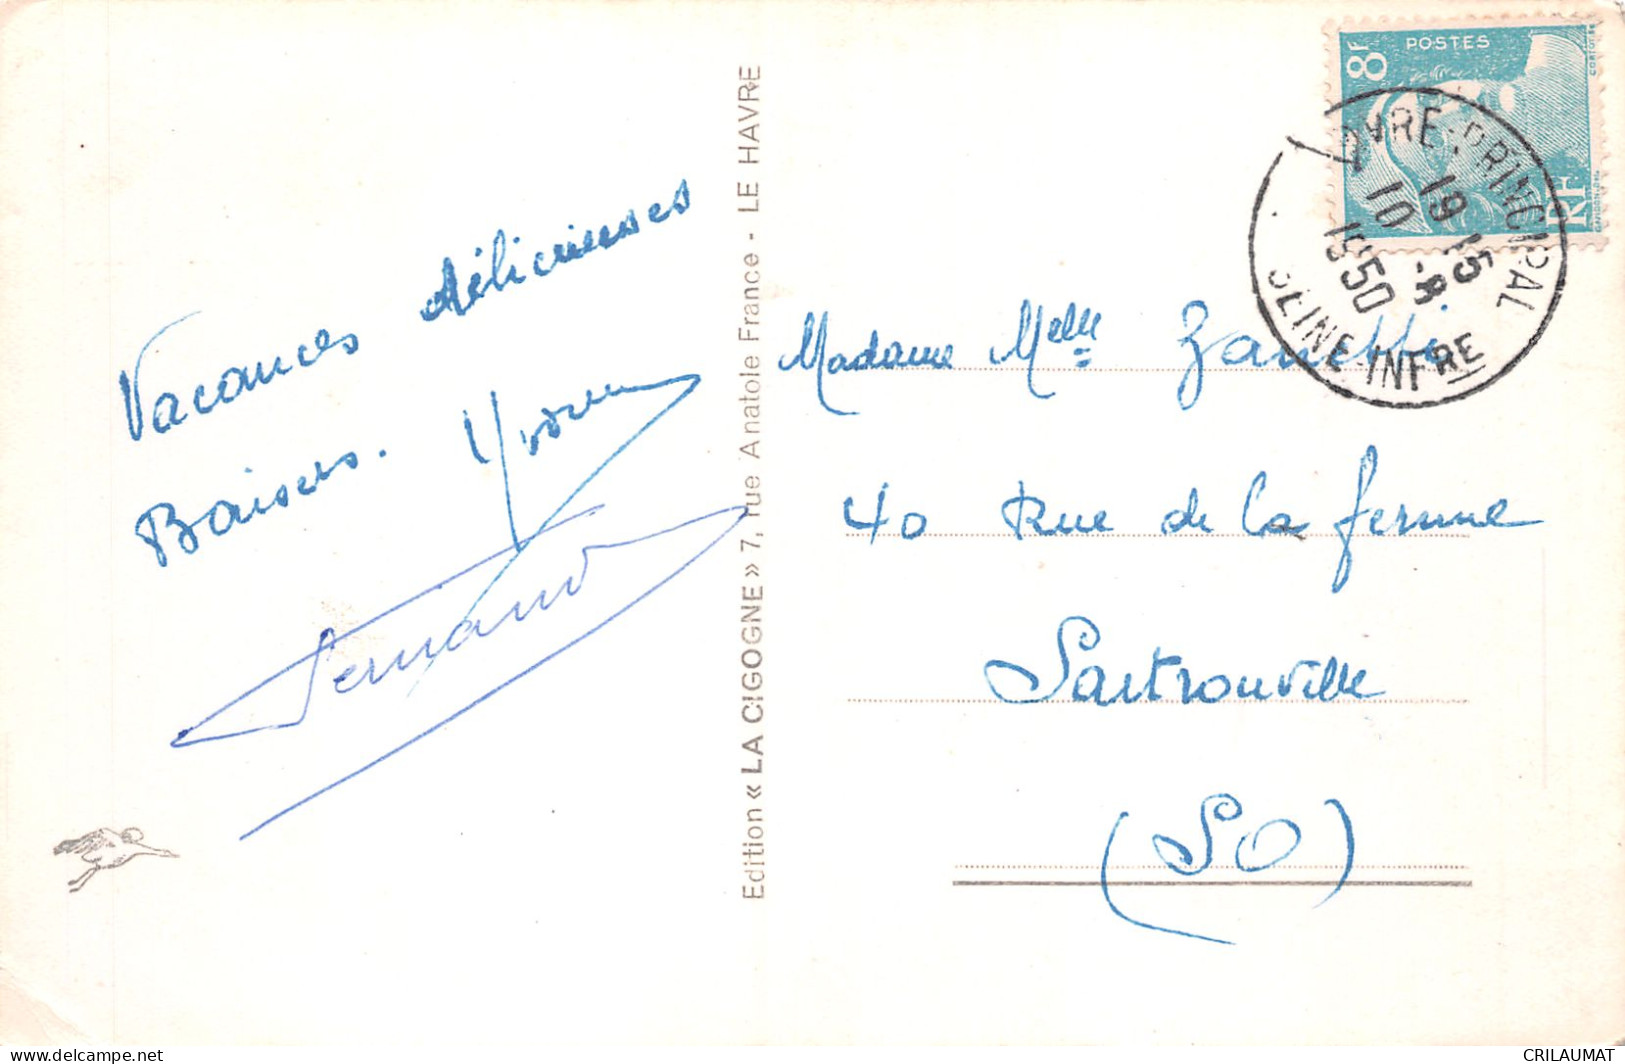 Vacances délicieuses
Baisers. Yvonne
Fernand
Edition « LA CIGOGNE » 7, rue Anatole France - LE HAVRE
8F POSTES
RF
HAVRE-PRINCIPAL
19 15
10 -8
1950
SEINE-INFRE
Madame Melle Zanetti
40 Rue de la ferme
Sartrouville
(SO)
CRILAUMAT